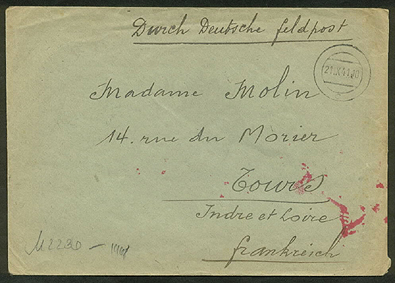 Durch Deutsche Feldpost
Madame Molin
14. rue du Morier
Tours
Indre et Loire
Frankreich
M2230 –